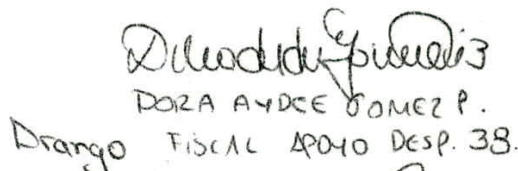 DORA AYDEE GOMEZ P.
Drango FISCAL APOYO DESP. 38.